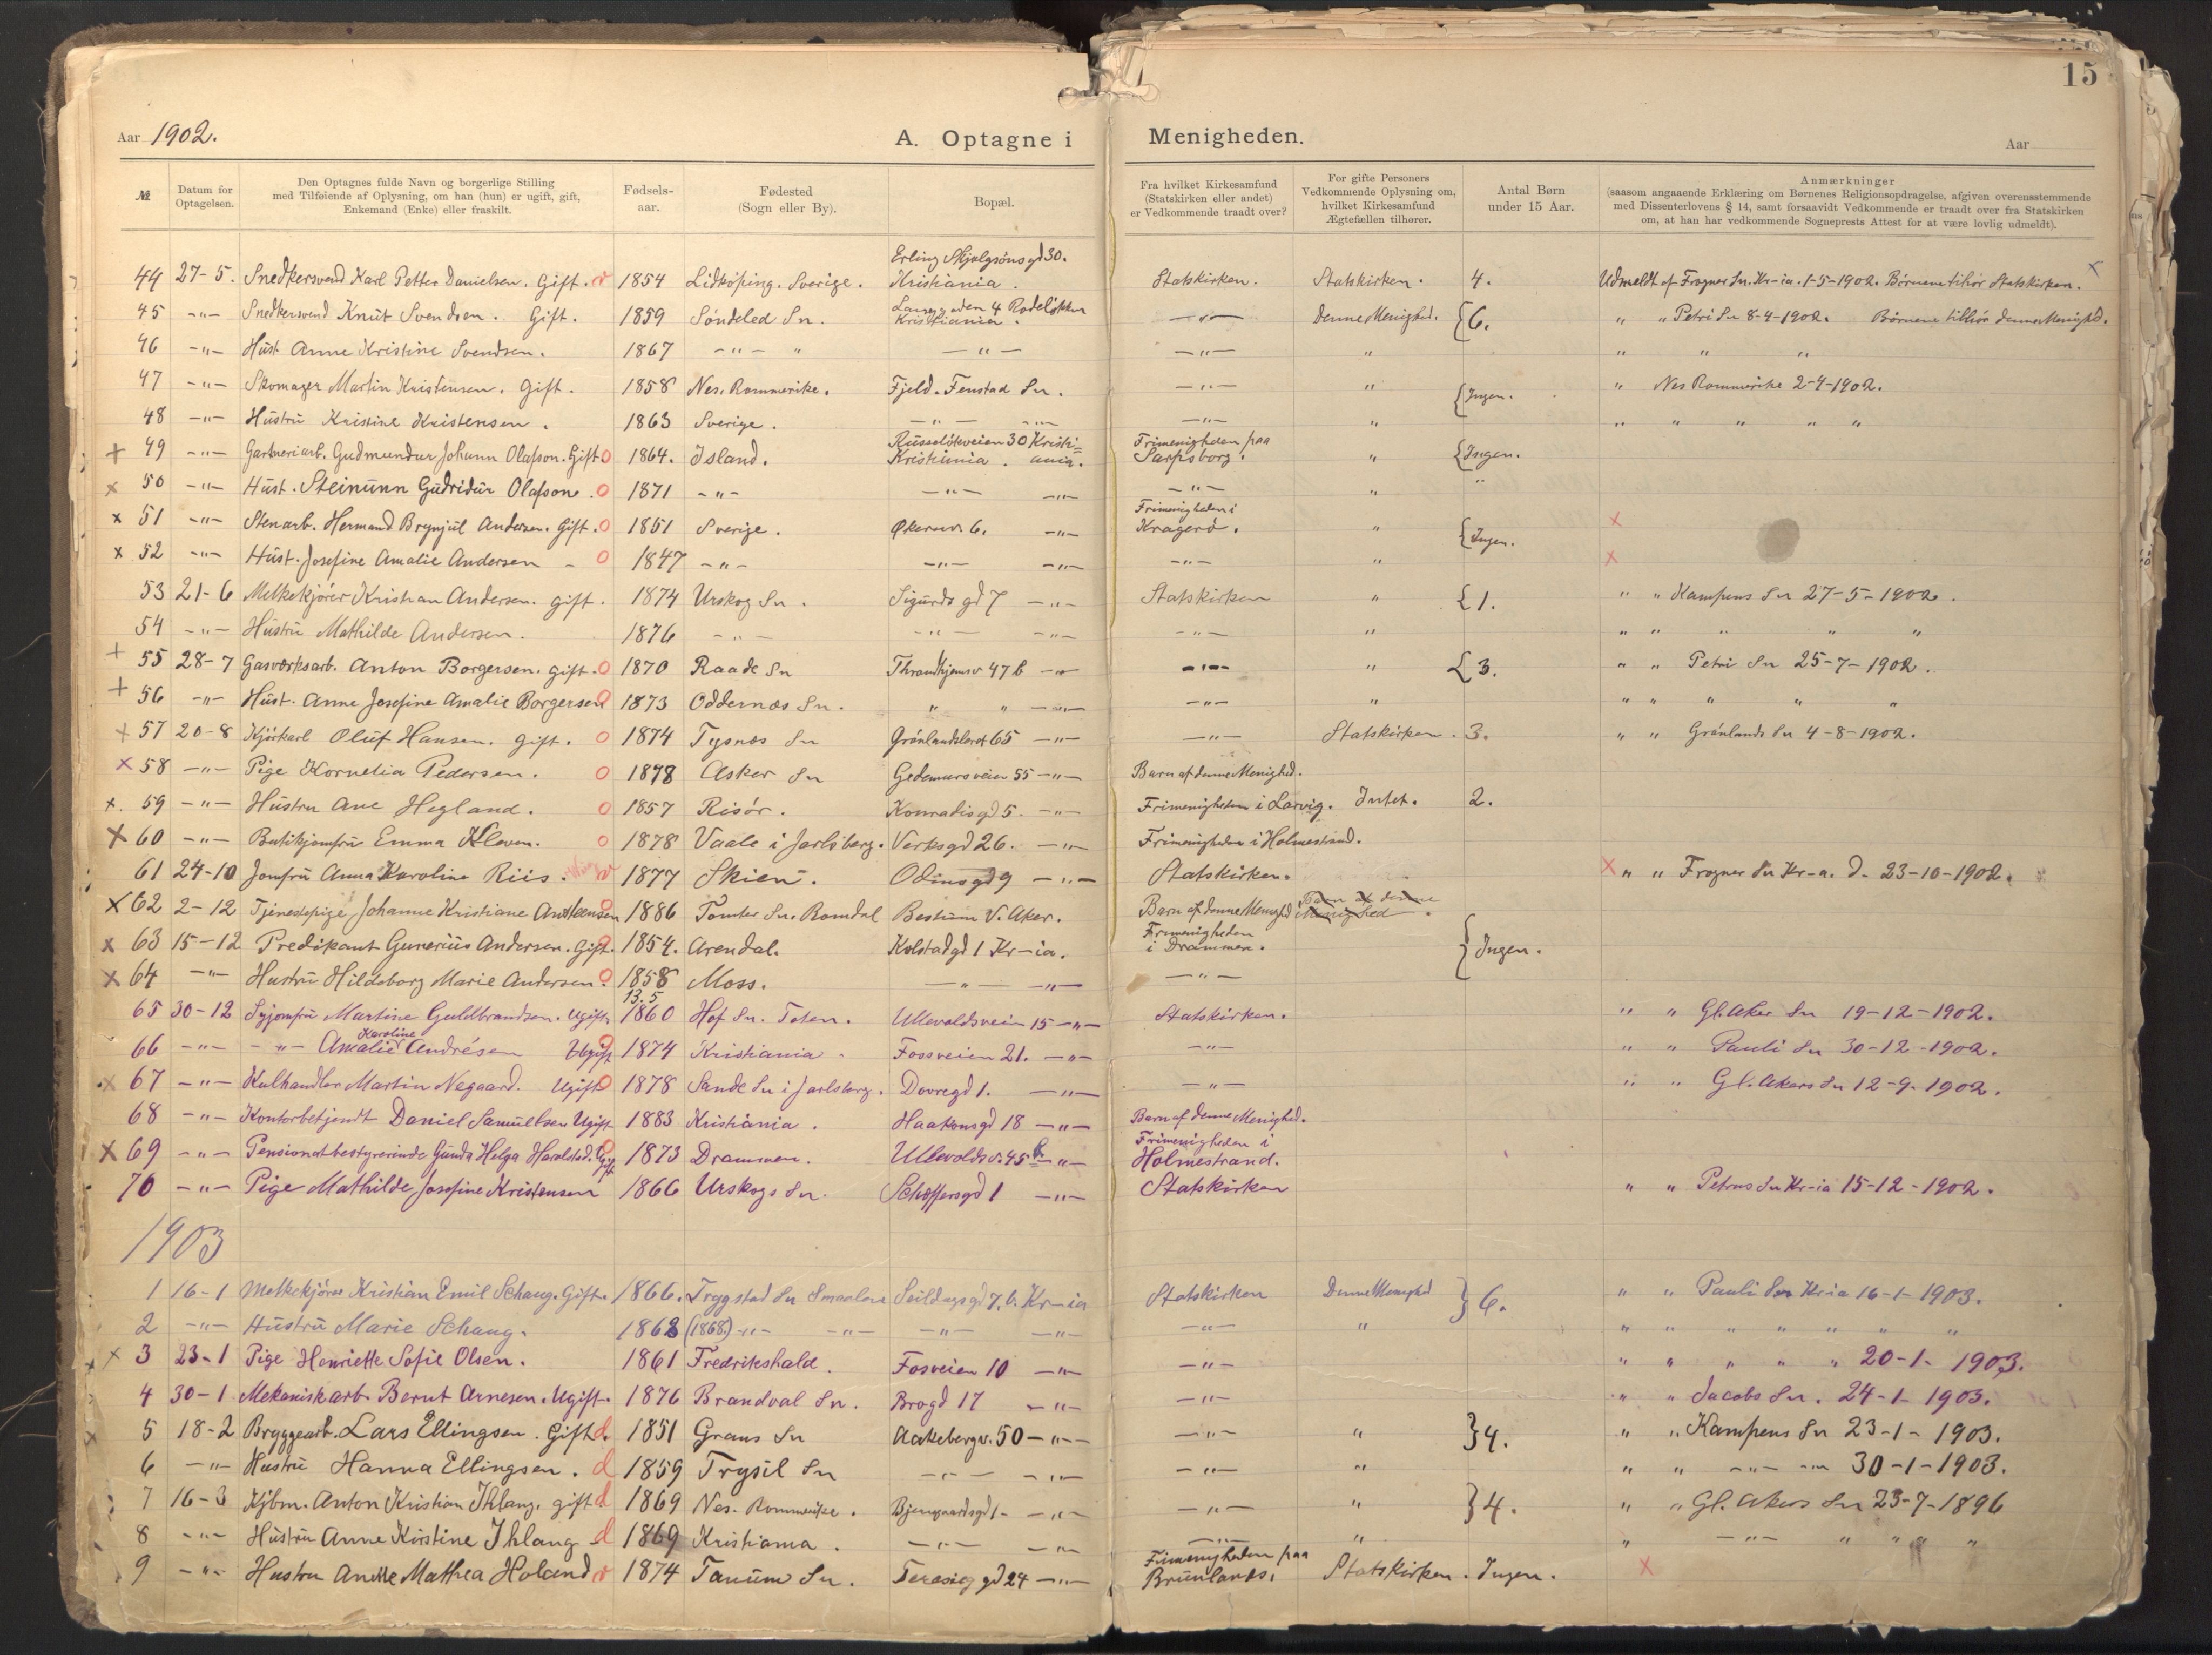 15
Aar 1902. A. Optagne i Menigheden. Aar
№
Datum for Optagelsen.
Den Optagnes fulde Navn og borgerlige Stilling
med Tilføiende af Oplysning, om han (hun) er ugift, gift,
Enkemand (Enke) eller fraskilt.
Fødsels-aar.
Fødested
(Sogn eller By).
Bopæl.
Fra hvilket Kirkesamfund
(Statskirken eller andet)
er Vedkommende traadt over?
For gifte Personers
Vedkommende Oplysning om,
hvilket Kirkesamfund
Ægtefællen tilhører.
Antal Børn
under 15 Aar.
Anmærkninger
(saasom angaaende Erklæring om Børnenes Religionsopdragelse, afgiven overensstemmende
med Dissenterlovens § 14, samt forsaavidt Vedkommende er traadt over fra Statskirken
om, at han har vedkommende Sogneprests Attest for at være lovlig udmeldt).
44 27-5. Snedkersvend Karl Petter Danielsen. Gift. 1854 Lidköping. Sverige. Erling Skjalgsöns gd 30. Kristiania. Statskirken. Statskirken. 4. Udmeldt af Frogner Sn. Kr-ia. 1-5-1902. Börnene tilhör Statskirken. x
45 -"- Snedkersvend Knut Svendsen. Gift. 1859 Söndeled Sn. Kristiania. -"- Denne Menighed. {6. " " Petri Sn 8-4-1902. Börnene tilhör denne Menighed.
46 -"- Hust. Anne Kristine Svendsen. 1867 -"- " -"- -"- " " " "
47 -"- Skomager Martin Kristensen. Gift. 1858 Nes. Rommerike. Fjeld. Fenstad Sn. -"- " {Ingen. " Nes Rommerike 2-4-1902.
48 -"- Hustru Kristine Kristensen. 1863 Sverige. -"- -"- -"- " " " " " "
+ 49 -"- Gartneriarb. Gudmundur Johann Olafson. Gift O 1864. Island. Russelökveien 30 Kristi= Kristiania. ania. Frimenigheden paa Sarpsborg. " {Ingen.
x 50 -"- Hust. Steinunn Gudridur Olafson. O 1871 -"- -"- -"- -"- " "
x 51 -"- Stenarb. Hermand Brynjul Andersen. Gift. O 1851 Sverige. Økernv. 6. -"- Frimenigheden i Kragerö. " {Ingen. x
x 52 -"- Hust. Josefine Amalie Andersen - O 1847 -"- -"- -"- -"- " x
53 21-6 Melkekjörer Kristian Andersen. gift. 1874 Urskog Sn. Sigurds gd 7 -"- Statskirken " {1. " " Kampens Sn 27-5-1902.
54 -"- Hustru Mathilde Andersen. 1876 -"- -"- -"- -"- " " " " " "
+ 55 28-7 Gasværksarb. Anton Borgersen. gift. O 1870 Raade Sn Throndhjemsv 47 b -"- -"- " {3. " " Petri Sn 25-7-1902.
+ 56 -"- Hust. Anne Josefine Amalie Borgersen O 1873 Oddernæs Sn. " " -"- -"- " " " " " "
+ 57 20-8 Kjörkarl Oluf Hansen. gift. O 1874 Tysnæs Sn Grönlandsleret 65 -"- -"- Statskirken. 3. " " Grönlands Sn 4-8-1902.
x 58 -"- Pige Kornelia Pedersen. O 1878 Asker Sn Gedemursveien 55 -"- Barn af denne Menighed.
x. 59 -"- Hustru Ane Hegland. O 1857 Risör. Konradisgd 5. -"- Frimenigheden i Larvig. Intet. 2.
x 60 -"- Butikjomfru Emma Kleven. O 1878 Vaale i Jarlsberg. Verksgd 26. -"- Frimenigheden i Holmestrand.
61 24-10 Jomfru Anna Karoline Riis. 1877 Skien. Odinsgd 9 -"- Statskirken. x " " Frogner Sn Kr-a. d. 23-10-1902.
x 62 2-12 Tjenestepige Johanne Kristiane Andteensen O 1886 Tomter Sn. Romdal Bestum V. Aker. Barn af denne Menighed Barn af denne Menighed.
x 63 15-12 Predikant Gunerius Andersen. Gift. 1854. Arendal. Kolstadgd 1 Kr-ia. Frimenigheden i Drammen. {Ingen.
x 64 -"- Hustru Hildeborg Marie Andersen. O 1858 Moss. -"- -"- -"-
65 30-12 Syjomfru Martine Guldbrandsen. Ugift. 13.5 1860 Hof Sn. Toten. Ullevoldsveien 15 -"- Statskirken. " " Gl. Aker Sn 19-12-1902.
66 -"- -"- Amalie Karoline Andrésen Ugift 1874 Kristiania. Fossveien 21. -"- -"- " " Pauli Sn 30-12-1902.
x 67 -"- Kulhandler Martin Negaard. Ugift O 1878 Sande Sn i Jarlsberg. Dovregd 1. -"- -"- " " Gl. Akers Sn 12-9-1902.
68 -"- Kontorbetjendt Daniel Samuelsen Ugift 1883 Kristiania. Haakonsgd 18 -"- Barn af denne Menighed.
x 69 -"- Pensionatbestyrerinde Gunda Helga Harolstad. Ugift 1873 Drammen. Ullevoldsv. 45 b -"- Frimenigheden i Holmestrand.
70 -"- Pige Mathilde Josefine Kristensen 1866 Urskogs Sn. Schøffersgd 1 -"- Statskirken " " Petrus Sn Kr-ia 15-12-1902.
1903
1 16-1 Melkekjörer Kristian Emil Schaug. Gift. 1866. Trygstad Sn Smaalene Seildugsgd 7, b. Kr-ia Statskirken Denne Menighed }6. " " Pauli Sn Kr-ia 16-1-1903.
2 -"- Hustru Marie Schaug. 1868 (1868.) -"- -"- -"- -"- -"- " " " " " " " "
x 3 23-1 Pige Henriette Sofie Olsen. 1861 Fredrikshald. Fosveien 10 -"- -"- " " " " " 20-1-1903.
4 30-1 Mekaniskarb. Bernt Arnesen. Ugift. 1876 Brandval Sn. Brogd 17 -"- -"- " " Jacobs Sn. 24-1-1903.
5 18-2 Bryggearb. Lars Ellingsen. Gift d. 1851 Grans Sn Aakebergv. 50 -"- -"- " }4. " " Kampens Sn 23-1-1903.
6 -"- Hustru Hanna Ellingsen. d 1859 Trysil Sn -"- -"- -"- " " " -"- -"- 30-1-1903.
7 16-3 Kjbm. Anton Kristian Ihlang. gift d 1869 Nes. Rommerike. Bjerregaardsgd 1- -"- -"- " }4. " " Gl. Akers Sn 23-7-1896
8 -"- Hustru Anne Kirstine Ihlang d 1869 Kristiania. -"- -"- -"- " " -"- " " " "
9 -"- Hustru Anette Mathea Holand 1874 Tanum Sn. Teresiegd 24 -"- Frimenigheden paa Brunlanes. Statskirken. Ingen. x